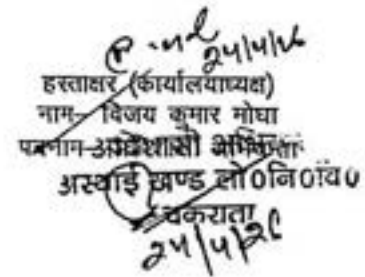 24/4/26
हस्ताक्षर (कार्यालयाध्यक्ष)
नाम- विजय कुमार मोघा
पदनाम-
अस्थाई खण्ड लो0नि0वि0
चकराता
24/4/26